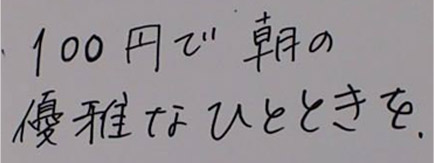 100円で朝の
優雅なひとときを.